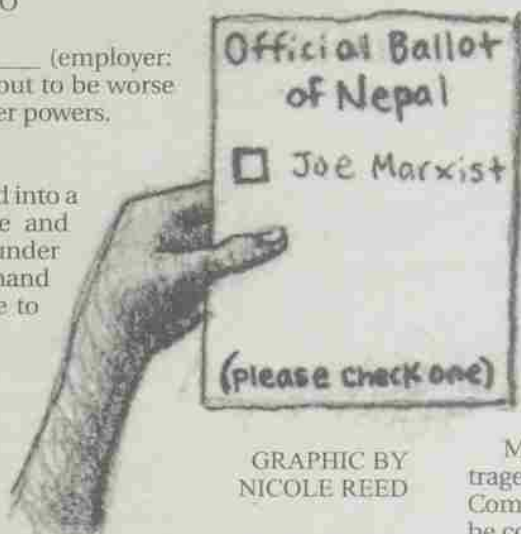 O
(employer:
out to be worse
er powers.
d into a
e and
under
hand
e to
Official Ballot
of Nepal
Joe Marxist
(please check one)
GRAPHIC BY
NICOLE REED
M
trage
Com
be co